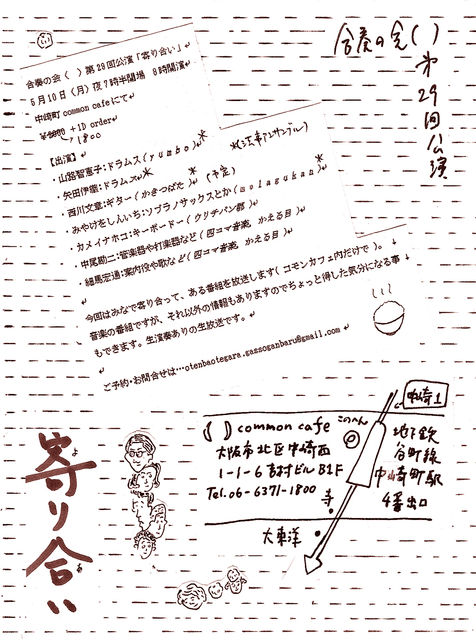 合奏の会( )
第29回公演
合奏の会( )第29回公演「寄り合い」
5月10日(月)夜7時半開場 8時開演
中崎町common cafeにて
¥2000 +1D order
1800
【出演】
・山路智恵子:ドラムス(yumbo)*
・矢田伊織:ドラムス*
・西川文章:ギター(かきつばた)* (予定)
・みやけをしんいち:ソプラノサックスとか(molagukan)*
・カメイナホコ:キーボードー(ウリチパン郡)
・中尾勘二:管楽器や打楽器など(四コマ音楽 かえる目)
・細馬宏通:案内役や歌など(四コマ音楽 かえる目)
今回はみなで寄り合って、ある番組を放送します(コモンカフェ内だけで)。
音楽の番組ですが、それ以外の情報もありますのでちょっと得した気分になる事
もできます。生演奏ありの生放送です。
ご予約・お問合せは…otenbaotegara.gassoganbaru@gmail.com
( ) common cafe
大阪市北区中崎西
1-1-6 吉村ビル B1F
Tel.06-6371-1800
このへん
中崎1
地下鉄
谷町線
中崎町駅
4番出口
寺
大東洋
寄り合い